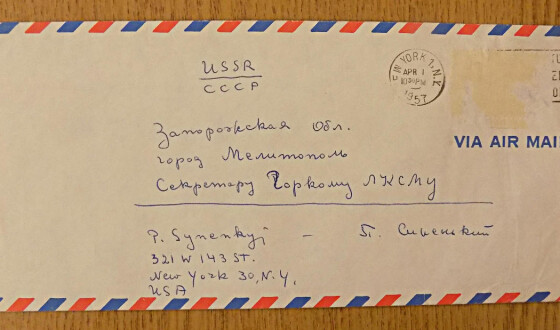 USSR
СССР
NEW YORK 1, N.Y.
APR 1
PM
1957
VIA AIR MAI
Запорожская Обл.
город Мелитополь
Секретару Горкому ЛКСМУ
P. Synenkyj – П.
321 W 143 ST.
New York 30, N.Y.
USA